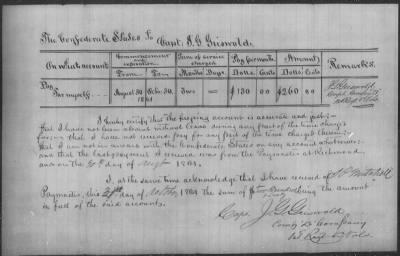 The Confederate States To Capt. J. G. Griswold.
On what account Commencement and expiration Term of service charged Pay per month Amount Remarks.
From To Months Days Dolls. Cents Dolls. Cents
Pay
For myself August 30, 1861 Octr. 30. Two $130 00 $260 00 J. G. Griswold
Capt. Comp'y "D"
1st Reg't Vols
I hereby certify that the foregoing account is accurate and just;
that I have not been absent without leave during any part of the time charged
for; that I have not received pay for any part of the time charged therein;
that I am not in arrears with the Confederate States on any account whatsoever;
and that the last payment I received was from the Paymaster at Richmond
and on the day of 1861.
I, at the same time acknowledge that I have received of
Paymaster, this day of 1861 the sum of Two Hundred Sixty the amount
in full of the said accounts.
Capt. J. G. Griswold
Comp'y "D" Company
1st Reg't Vols.